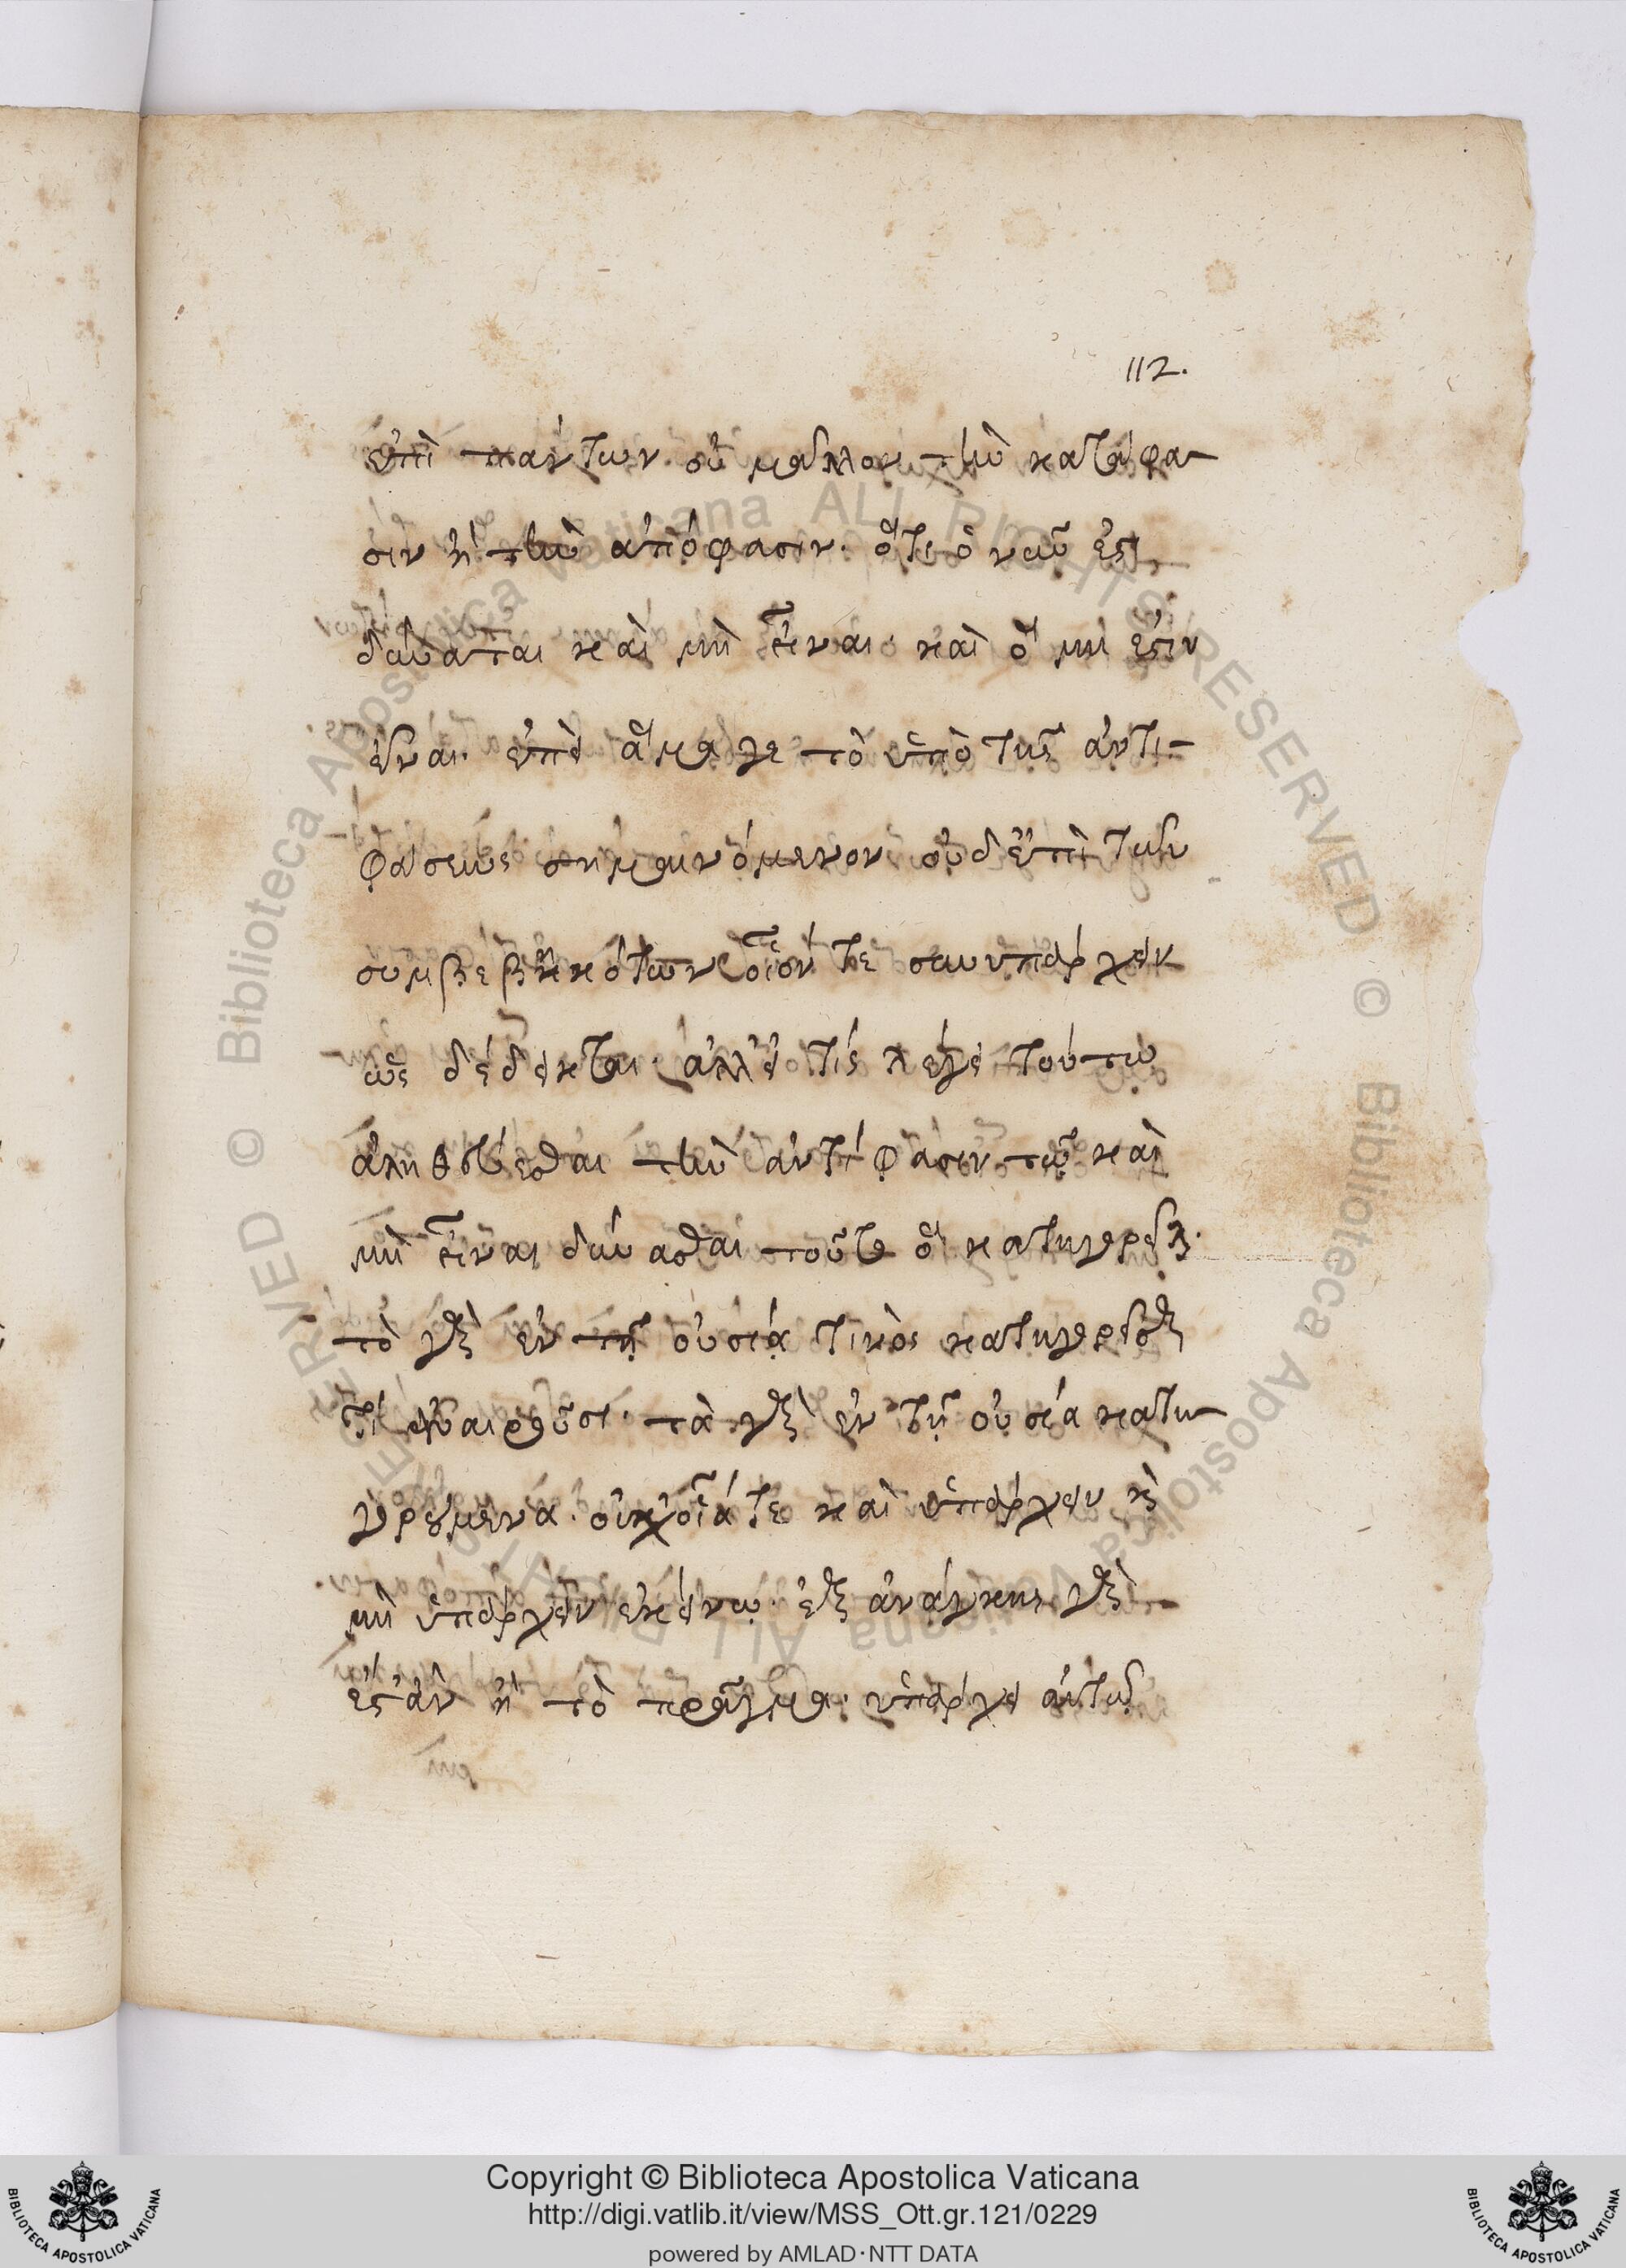 112.
ἐπὶ πάντων οὐ μᾶλλον τὴν κατάφα-
σιν ἢ τὴν ἀπόφασιν· ὅτι ὃ νῦν ἐστι
δύναται καὶ μὴ εἶναι· καὶ ὃ μὴ ἐστιν
εἶναι· ἐπεὶ ἅμα γε τὸ ὑπὸ τῆς ἀντι-
φάσεως σημαινόμενον οὐδ' ἐπὶ τῶν
συμβεβηκότων οἷόν τε συνυπάρχειν
ὡς δέδεικται· ἀλλ' εἴ τις λέγει τούτῳ
ἀληθεύεσθαι τὴν ἀντίφασιν τῷ καὶ
μὴ εἶναι δύνασθαι τοῦτο ὃ κατηγορεῖται·
τὸ γὰρ ἐν τῇ οὐσίᾳ τινὸς κατηγορεῖσθαι
τί ἀναιροῦσι· τὰ γὰρ ἐν τῇ οὐσίᾳ κατη-
γορούμενα· οὐχ οἷά τε καὶ ὑπάρχειν καὶ
μὴ ὑπάρχειν ἐκείνῳ· ἐξ ἀνάγκης γὰρ
ἔστ' ἂν ᾖ τὸ πρᾶγμα· ὑπάρχει αὐτῷ
Copyright © Biblioteca Apostolica Vaticana
http://digi.vatlib.it/view/MSS_Ott.gr.121/0229
powered by AMLAD·NTT DATA
BIBLIOTECA APOSTOLICA VATICANA
BIBLIOTECA APOSTOLICA VATICANA